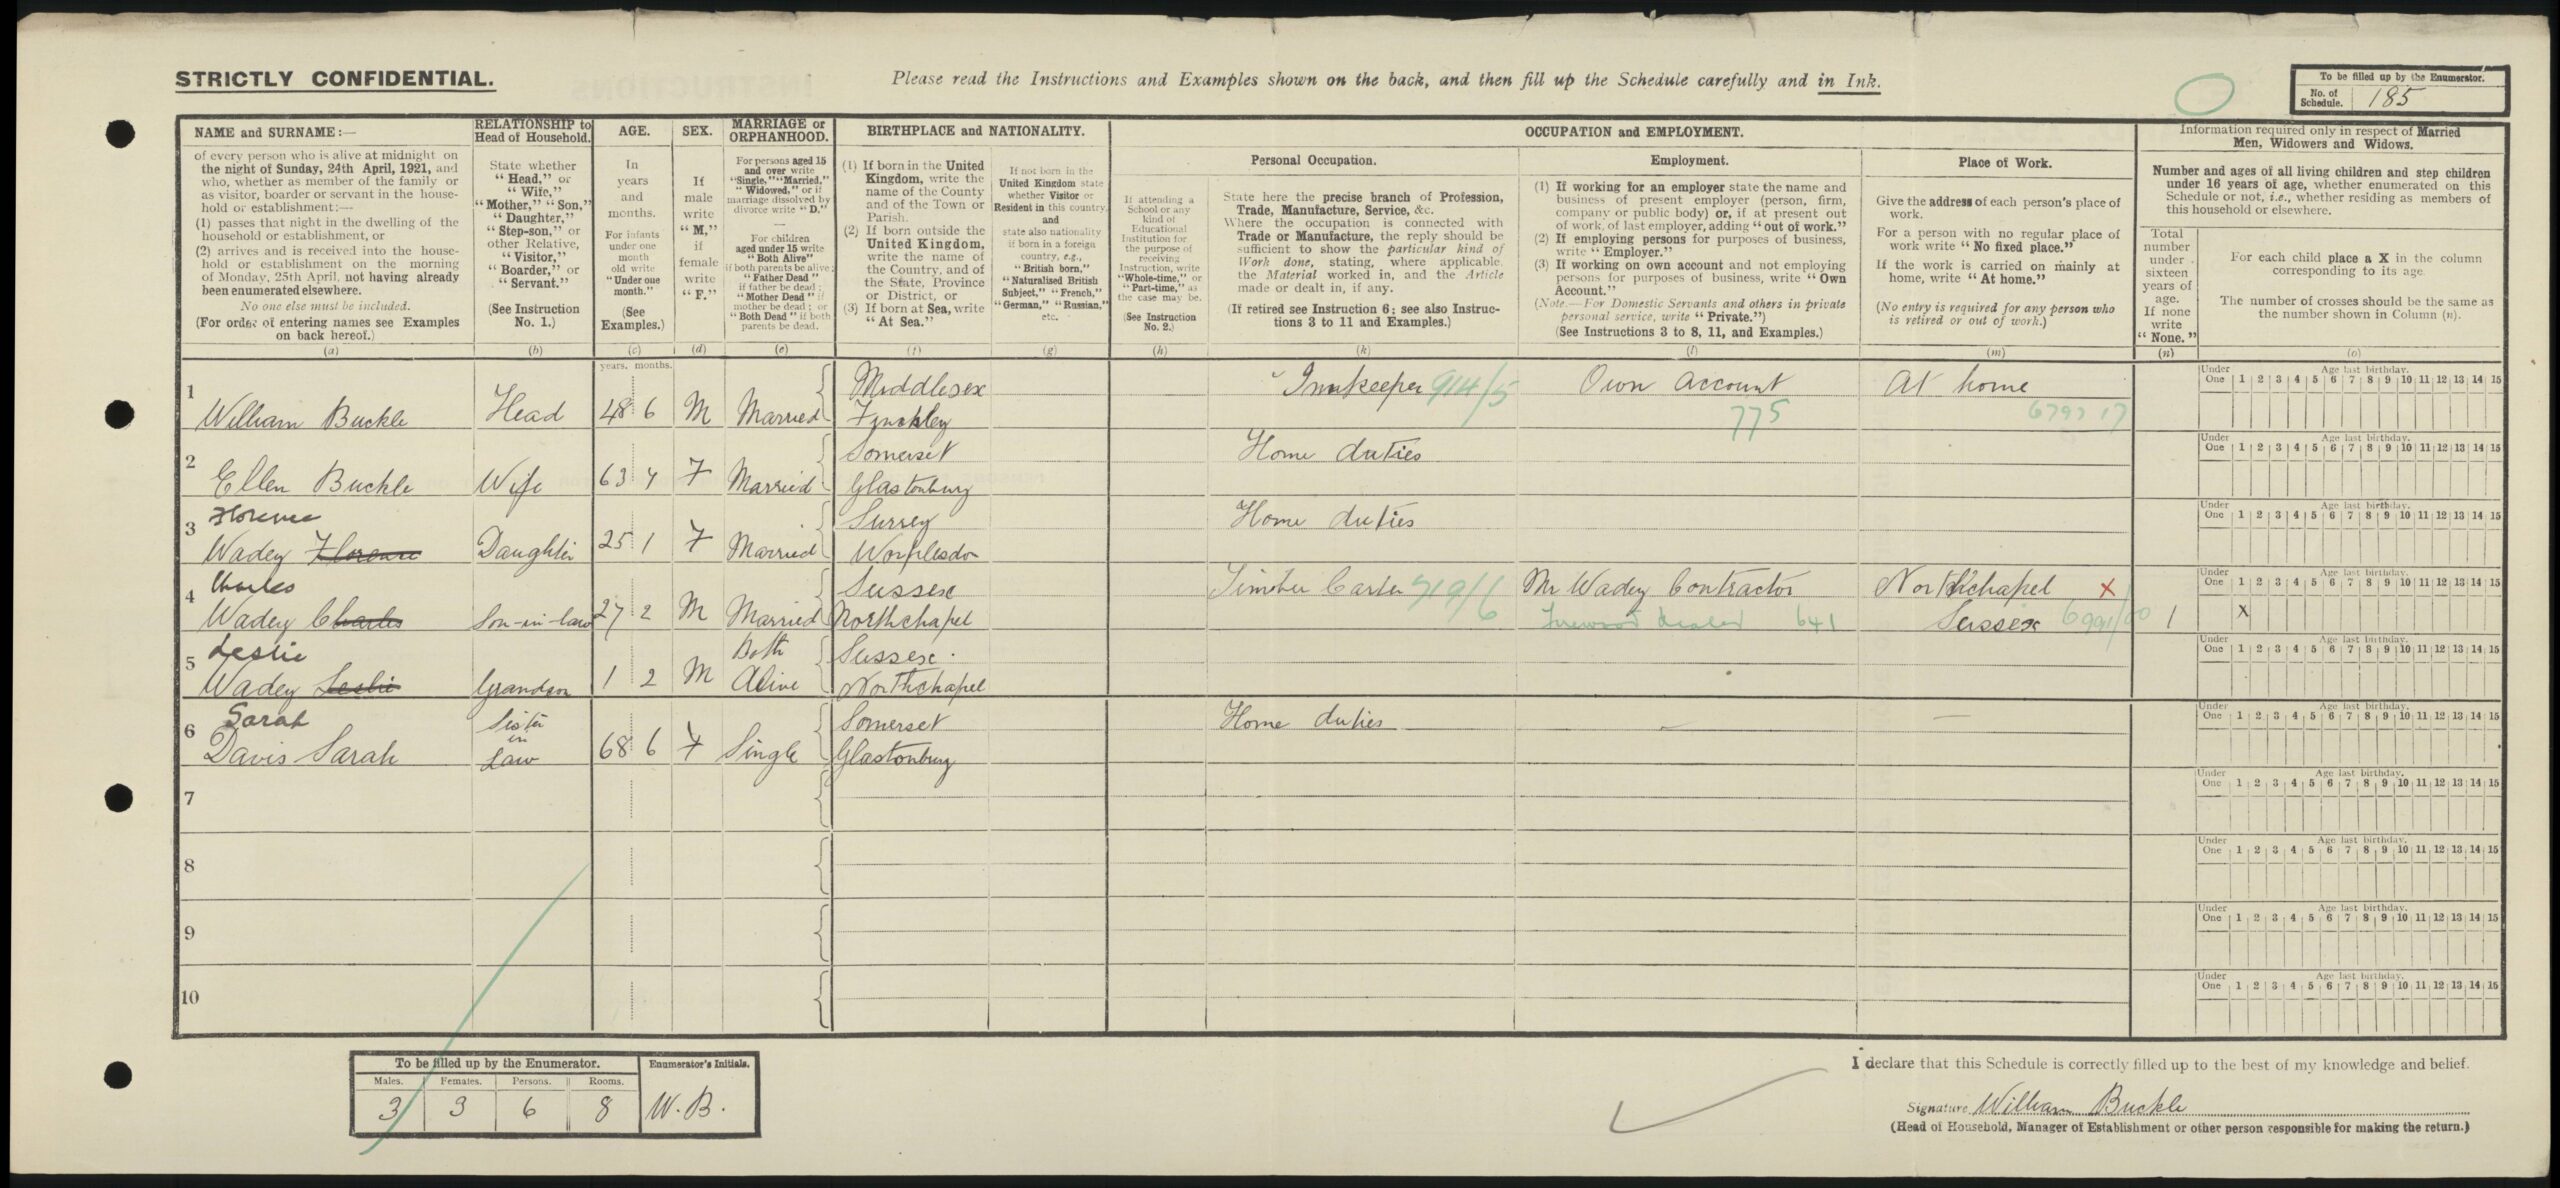 STRICTLY CONFIDENTIAL.
Please read the Instructions and Examples shown on the back, and then fill up the Schedule carefully and in Ink.
To be filled up by the Enumerator.
No. of Schedule. 185
NAME and SURNAME:—
of every person who is alive at midnight on
the night of Sunday, 24th April, 1921, and
who, whether as member of the family or
as visitor, boarder or servant in the house-
hold or establishment:—
(1) passes that night in the dwelling of the
household or establishment, or
(2) arrives and is received into the house-
hold or establishment on the morning
of Monday, 25th April, not having already
been enumerated elsewhere.
No one else must be included.
(For order of entering names see Examples
on back hereof.)
(a)
RELATIONSHIP to
Head of Household.
State whether
"Head," or
"Wife,"
"Mother," "Son,"
"Daughter,"
"Step-son," or
other Relative,
"Visitor,"
"Boarder," or
"Servant."
(See Instruction
No. 1.)
(b)
AGE.
In
years
and
months.
For infants
under one
month
old write
"Under one
month."
(See
Examples.)
(c)
years. months.
SEX.
If
male
write
"M,"
if
female
write
"F."
(d)
MARRIAGE or
ORPHANHOOD.
For persons aged 15
and over write
"Single," "Married,"
"Widowed," or if
marriage dissolved by
divorce write "D."
For children
aged under 15 write
"Both Alive"
if both parents be alive;
"Father Dead"
if father be dead;
"Mother Dead" if
mother be dead; or
"Both Dead" if both
parents be dead.
(e)
BIRTHPLACE and NATIONALITY.
(1) If born in the United
Kingdom, write the
name of the County
and of the Town or
Parish.
(2) If born outside the
United Kingdom,
write the name of
the Country, and of
the State, Province
or District, or
(3) If born at Sea, write
"At Sea."
(f)
If not born in the
United Kingdom state
whether Visitor or
Resident in this country,
and
state also nationality
if born in a foreign
country, e.g.,
"British born,"
"Naturalised British
Subject," "French,"
"German," "Russian,"
etc.
(g)
OCCUPATION and EMPLOYMENT.
If attending a
School or any
kind of
Educational
Institution for
the purpose of
receiving
Instruction, write
"Whole-time," or
"Part-time," as
the case may be.
(See Instruction
No. 2.)
(h)
Personal Occupation.
State here the precise branch of Profession,
Trade, Manufacture, Service, &c.
Where the occupation is connected with
Trade or Manufacture, the reply should be
sufficient to show the particular kind of
Work done, stating, where applicable,
the Material worked in, and the Article
made or dealt in, if any.
(If retired see Instruction 6; see also Instruc-
tions 3 to 11 and Examples.)
(k)
Employment.
(1) If working for an employer state the name and
business of present employer (person, firm,
company or public body) or, if at present out
of work, of last employer, adding "out of work."
(2) If employing persons for purposes of business,
write "Employer."
(3) If working on own account and not employing
persons for purposes of business, write "Own
Account."
(Note.—For Domestic Servants and others in private
personal service, write "Private.")
(See Instructions 3 to 8, 11, and Examples.)
(l)
Place of Work.
Give the address of each person's place of
work.
For a person with no regular place of
work write "No fixed place."
If the work is carried on mainly at
home, write "At home."
(No entry is required for any person who
is retired or out of work.)
(m)
Information required only in respect of Married
Men, Widowers and Widows.
Number and ages of all living children and step children
under 16 years of age, whether enumerated on this
Schedule or not, i.e., whether residing as members of
this household or elsewhere.
Total
number
under
sixteen
years of
age.
If none
write
"None."
(n)
For each child place a X in the column
corresponding to its age.
The number of crosses should be the same as
the number shown in Column (n).
(o)
1 William Buckle Head 48 6 M Married Middlesex Finchley Innkeeper 914/5 Own Account 775 At home
Under One Age last birthday. 1 2 3 4 5 6 7 8 9 10 11 12 13 14 15
2 Ellen Buckle Wife 63 4 F Married Somerset Glastonbury Home duties
Under One Age last birthday. 1 2 3 4 5 6 7 8 9 10 11 12 13 14 15
3 Florence
Wadey Florence Daughter 25 1 F Married Surrey Worplesdon Home duties
Under One Age last birthday. 1 2 3 4 5 6 7 8 9 10 11 12 13 14 15
4 Charles
Wadey Charles Son-in-law 27 2 M Married Sussex Northchapel Timber Carter 719/6 Mr Wadey Contractor Firewood dealer 641 Northchapel X Sussex 1 X
Under One Age last birthday. 1 2 3 4 5 6 7 8 9 10 11 12 13 14 15
5 Leslie
Wadey Leslie Grandson 1 2 M Both Alive Sussex Northchapel
Under One Age last birthday. 1 2 3 4 5 6 7 8 9 10 11 12 13 14 15
6 Sarah
Davis Sarah Sister in Law 68 6 F Single Somerset Glastonbury Home duties — —
Under One Age last birthday. 1 2 3 4 5 6 7 8 9 10 11 12 13 14 15
7
Under One Age last birthday. 1 2 3 4 5 6 7 8 9 10 11 12 13 14 15
8
Under One Age last birthday. 1 2 3 4 5 6 7 8 9 10 11 12 13 14 15
9
Under One Age last birthday. 1 2 3 4 5 6 7 8 9 10 11 12 13 14 15
10
Under One Age last birthday. 1 2 3 4 5 6 7 8 9 10 11 12 13 14 15
To be filled up by the Enumerator.
Males. Females. Persons. Rooms.
3 3 6 8
Enumerator's Initials.
W. B.
I declare that this Schedule is correctly filled up to the best of my knowledge and belief.
Signature William Buckle
(Head of Household, Manager of Establishment or other person responsible for making the return.)